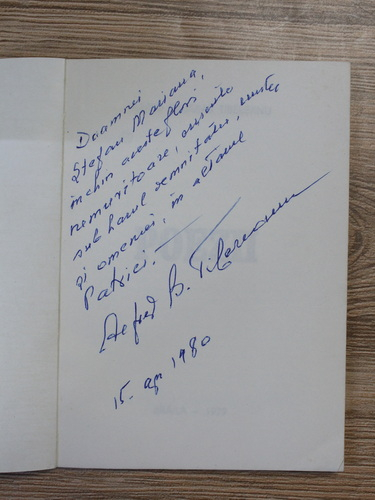 Doamnei
Ștefan Mariana,
închin aceste flori
nemuritoare,
sub harul demnității,
și omeniei, în altarul
Patriei.
Alfred B. Tibereanu
15. apr 1980